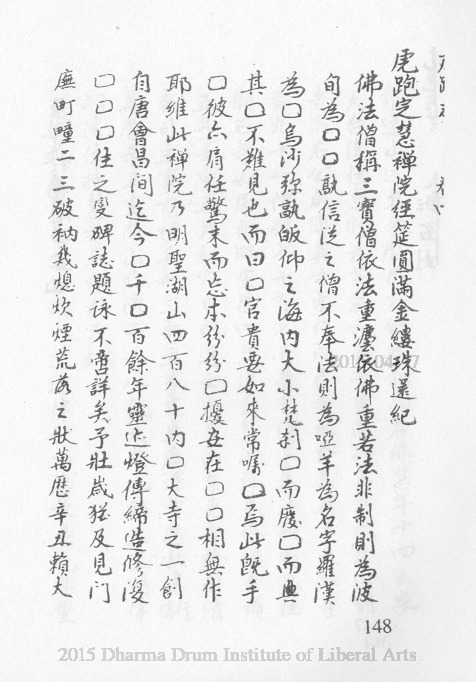 虎跑定慧禪院經筵圓滿金縷珠還紀
佛法僧稱三寶僧依法重灋依佛重若法非制則為波
旬為口口孰信従之僧不奉法則為啞羊為名字羅漢
為口烏沙弥孰皈仰之海內大小梵刹口而廢口而典
其口不難見也而曰口官貴要如來常囑口焉此旣手
口彼六肩任驚末而忘本紛紛口擾妄在口口相無作
耶維此禅院乃明聖湖山四百八十內口大寺之一創
自唐會昌間迄今口千口百餘年靈迹燈傳締造修復
口口口住之變碑誌題詠不啻詳矣予壯歲猶及見门
廡町疃二三破衲幾熄炊煙荒落之狀萬歷辛丑賴大
148
2015 Dharma Drum Institute of Liberal Arts